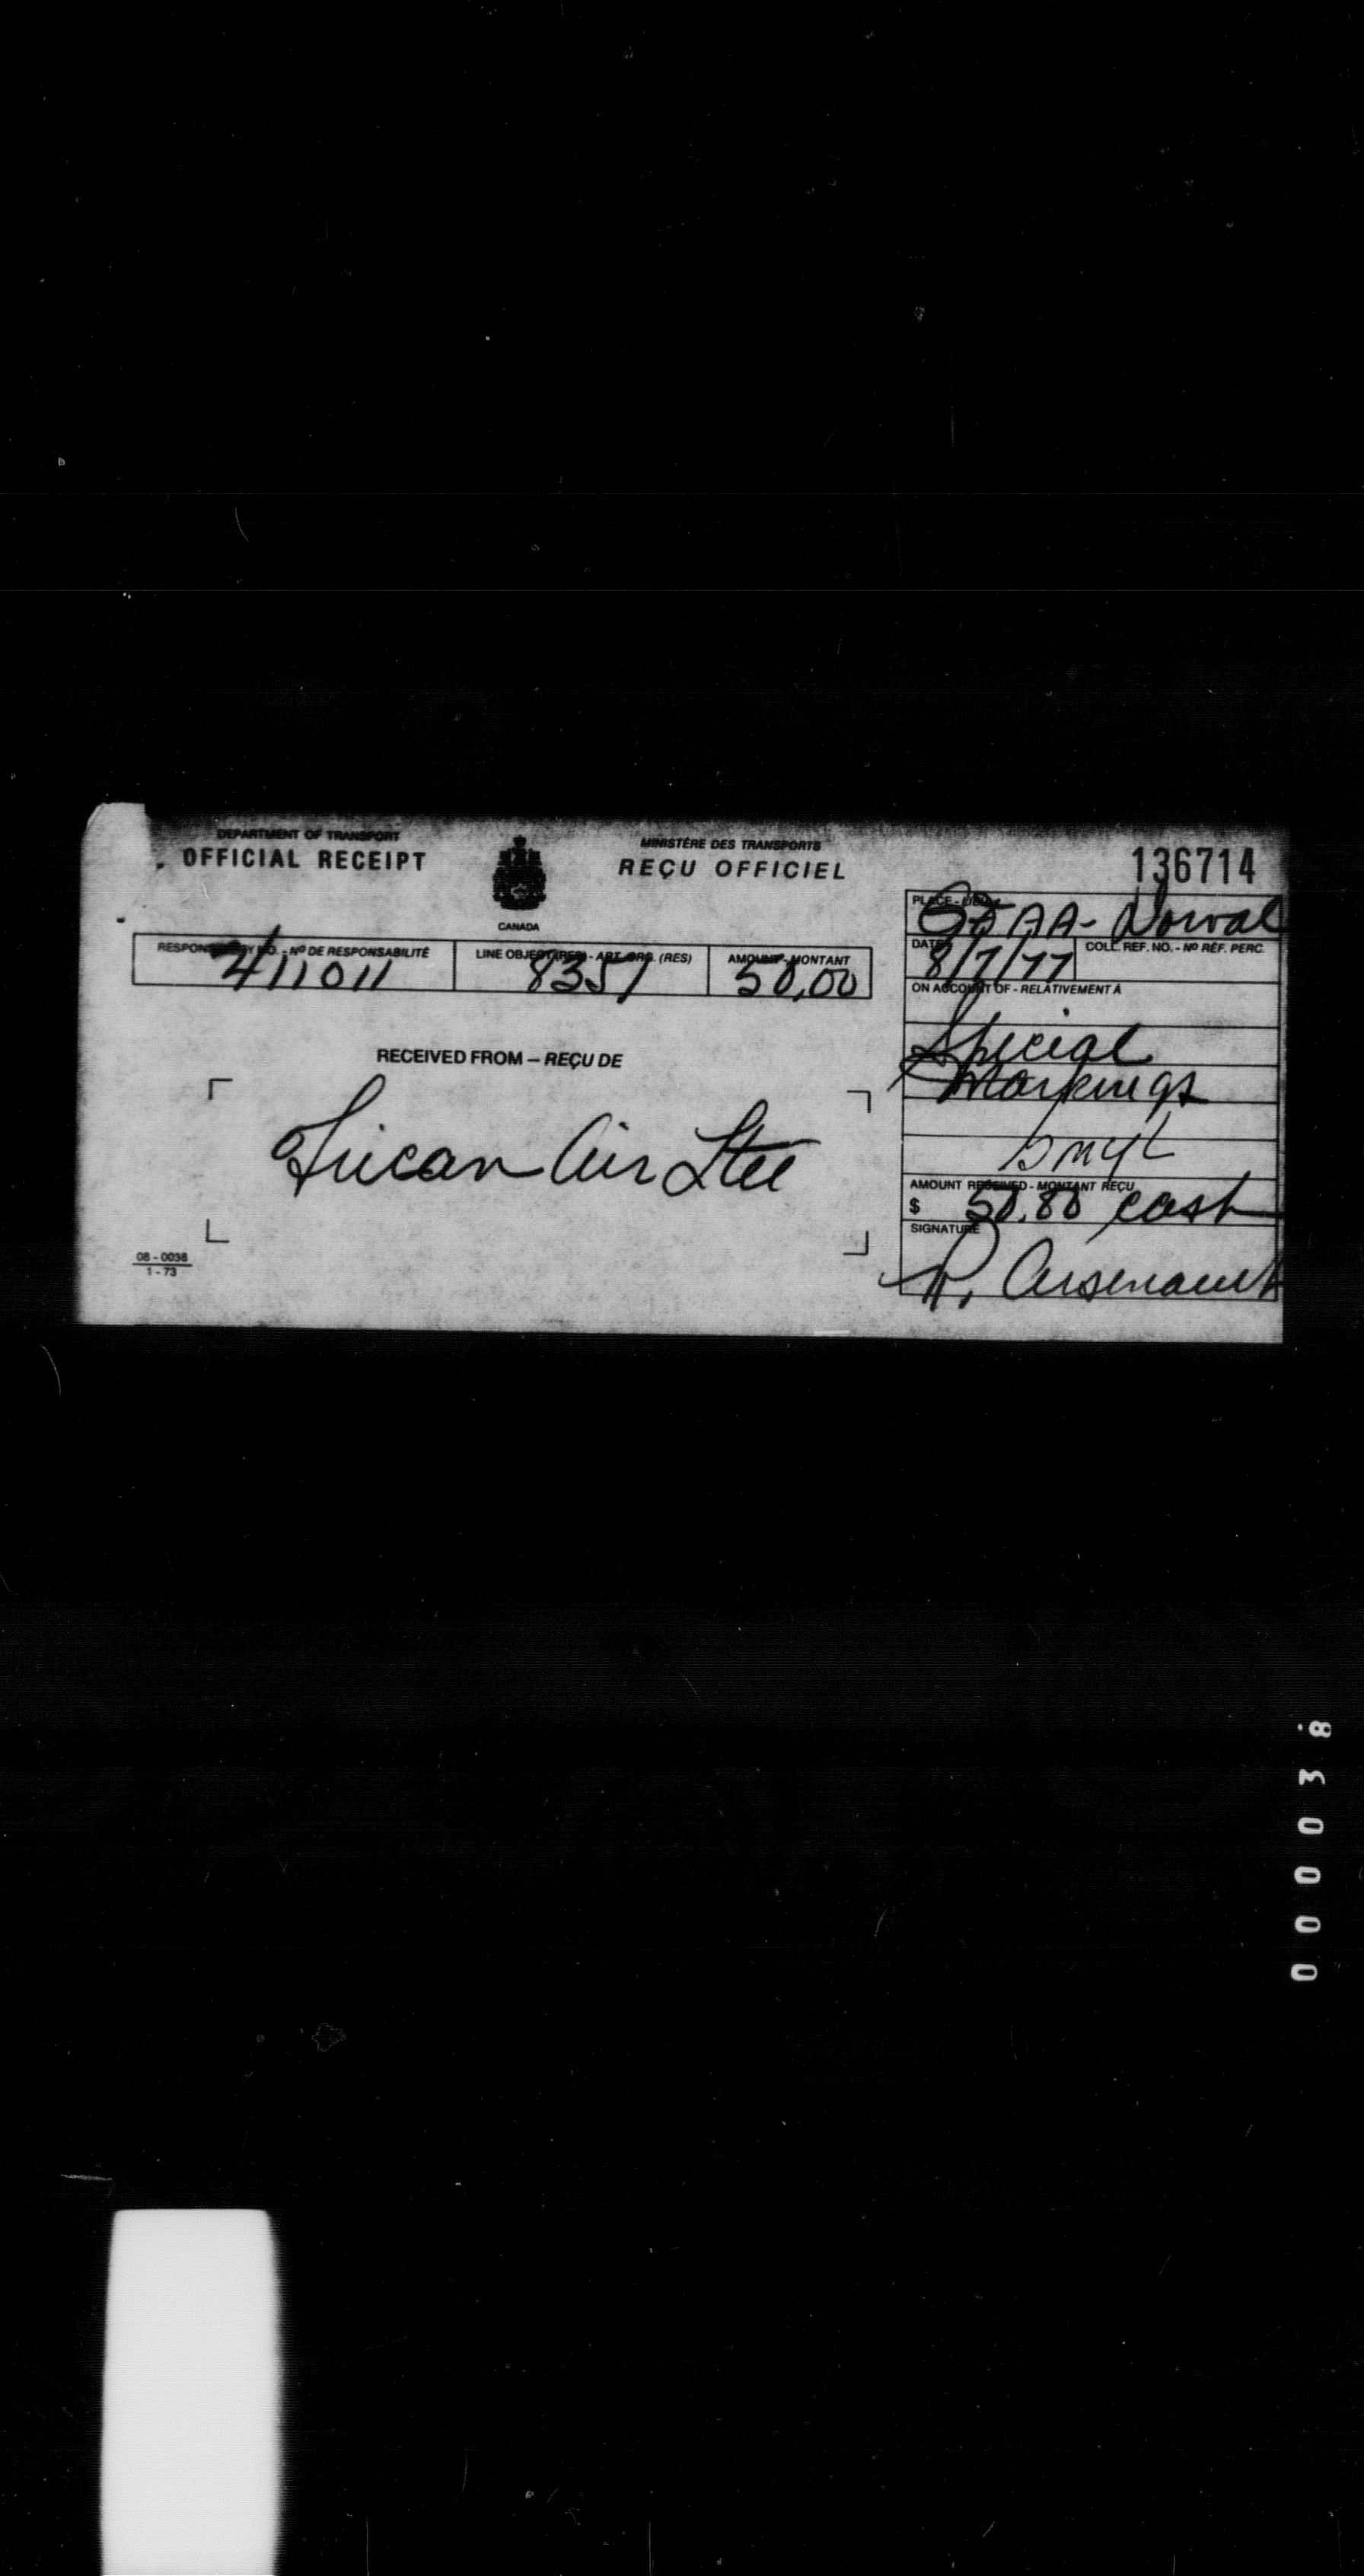 DEPARTMENT OF TRANSPORT
OFFICIAL RECEIPT
CANADA
MINISTÈRE DES TRANSPORTS
REÇU OFFICIEL
136714
PLACE - LIEU
AA - Dorval
DATE
8/7/77
COLL. REF. NO. - Nº RÉF. PERC.
RESPONSIBILITY NO. - Nº DE RESPONSABILITÉ
411011
LINE OBJECT (RES) - ART. ORG. (RES)
8351
AMOUNT - MONTANT
50.00
ON ACCOUNT OF - RELATIVEMENT À
Special
Markings
RECEIVED FROM – REÇU DE
Air Ltee
AMOUNT RECEIVED - MONTANT REÇU
$ 50.00 cash
SIGNATURE
R. Arsenault
08 - 0038
1 - 73
000038